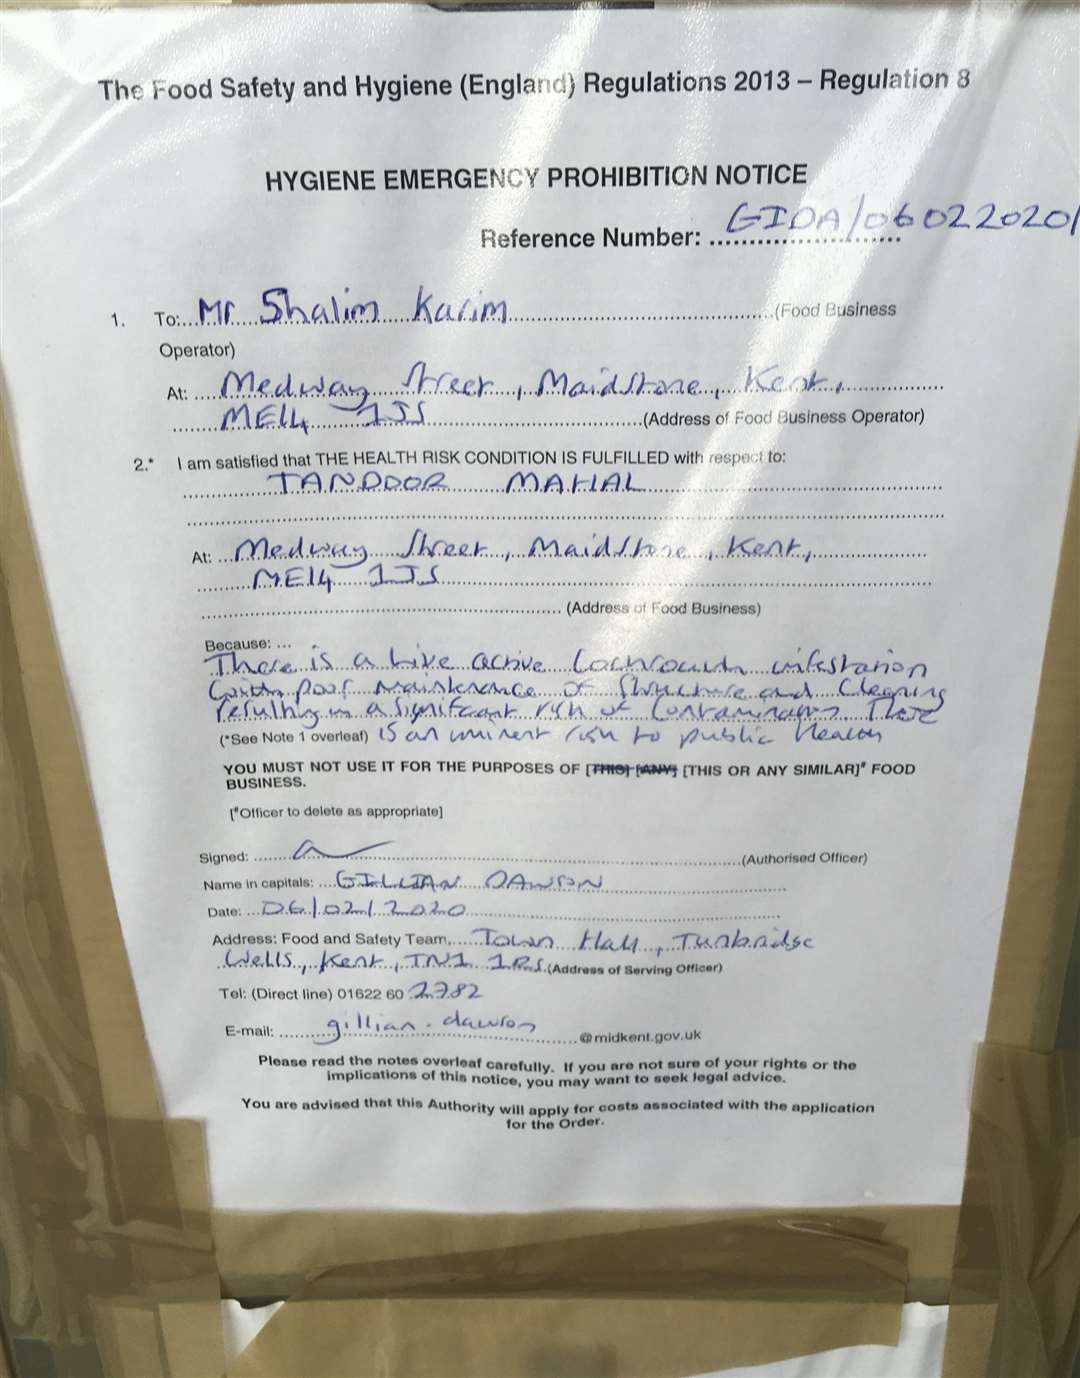 The Food Safety and Hygiene (England) Regulations 2013 – Regulation 8
HYGIENE EMERGENCY PROHIBITION NOTICE
Reference Number: GIDA/06022020/
1. To: Mr Shalim Karim (Food Business
Operator)
At: Medway Street, Maidstone, Kent,
ME14 1JS (Address of Food Business Operator)
2.* I am satisfied that THE HEALTH RISK CONDITION IS FULFILLED with respect to:
TANDOOR MAHAL
At: Medway Street, Maidstone, Kent,
ME14 1JS
(Address of Food Business)
Because: ...
There is a live active Cockroach infestation
with poor maintenance of structure and cleaning
resulting in a significant risk of contamination. There
(*See Note 1 overleaf) is an iminent risk to public Health
YOU MUST NOT USE IT FOR THE PURPOSES OF [THIS] [ANY] [THIS OR ANY SIMILAR]# FOOD
BUSINESS.
[#Officer to delete as appropriate]
Signed: (Authorised Officer)
Name in capitals: GILLIAN DAWSON
Date: 06/02/2020
Address: Food and Safety Team, Town Hall, Tunbridge
Wells, Kent, TN1 1RS (Address of Serving Officer)
Tel: (Direct line) 01622 60 2782
E-mail: gillian.dawson @midkent.gov.uk
Please read the notes overleaf carefully. If you are not sure of your rights or the
implications of this notice, you may want to seek legal advice.
You are advised that this Authority will apply for costs associated with the application
for the Order.